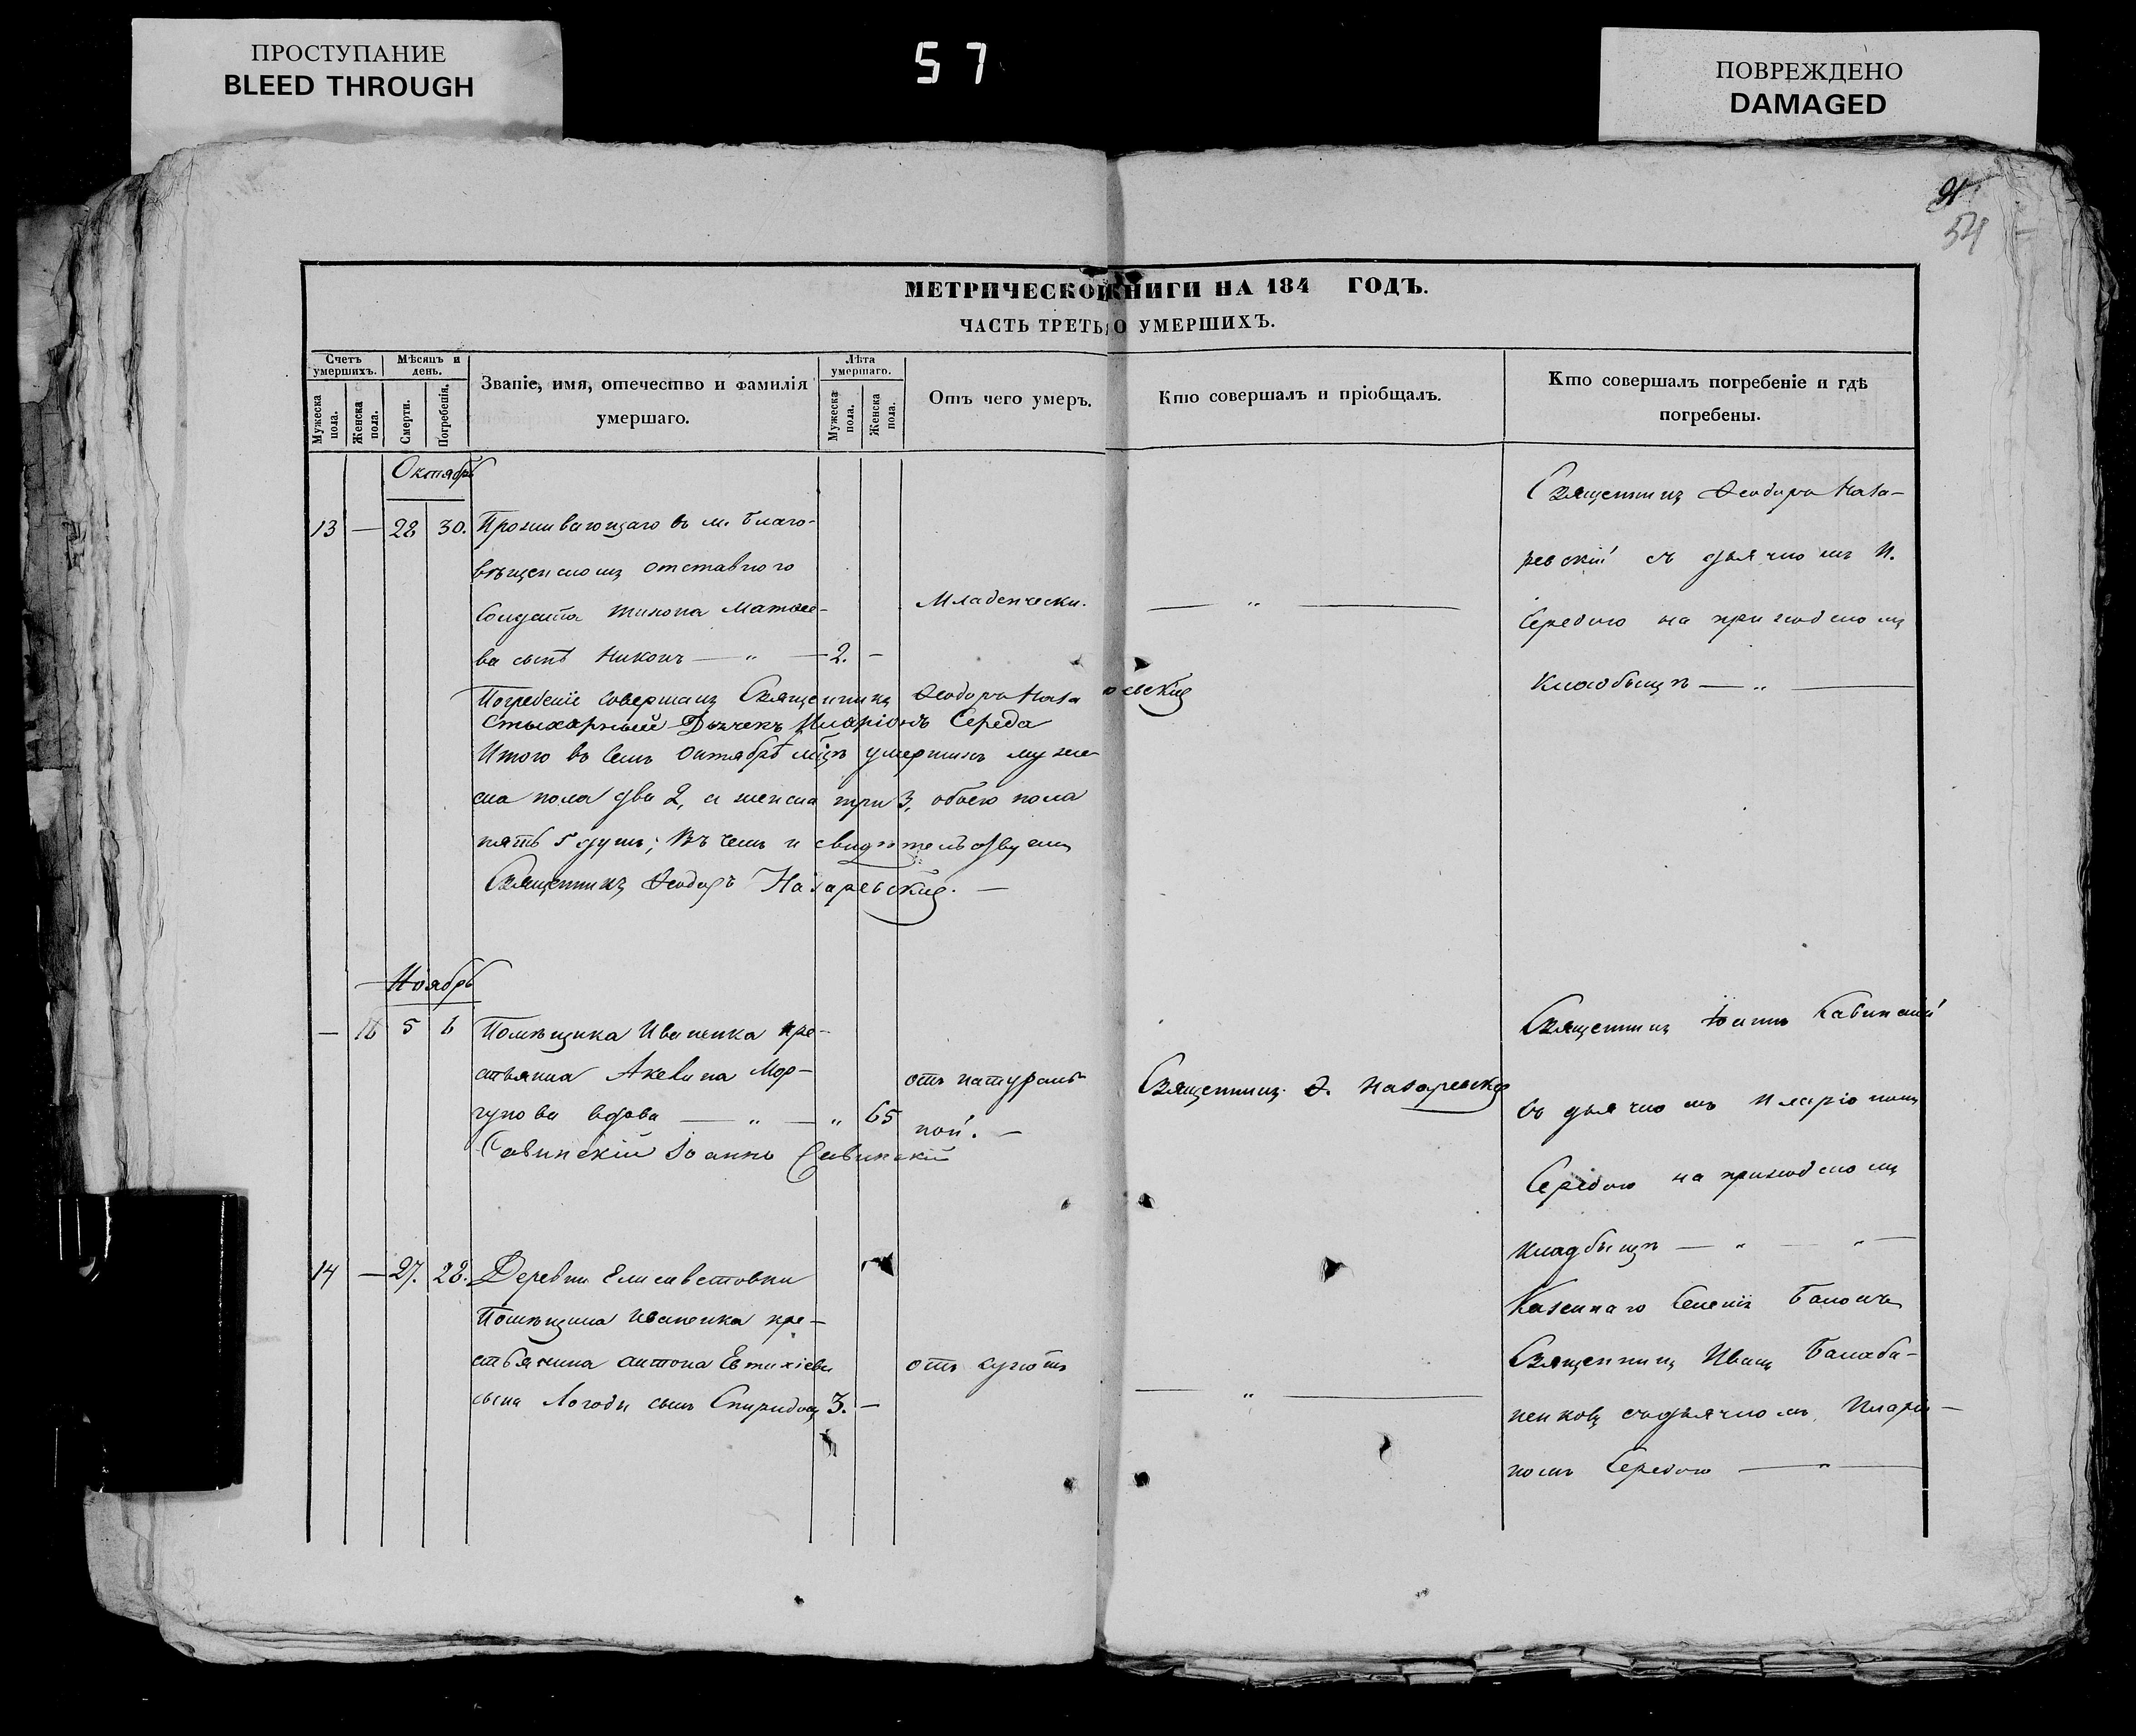 ПРОСТУПАНИЕ
BLEED THROUGH
57
ПОВРЕЖДЕНО
DAMAGED
54
МЕТРИЧЕСКОЙ КНИГИ НА 184 ГОДЪ.
ЧАСТЬ ТРЕТЬЯ О УМЕРШИХЪ.
Счетъ умершихъ.
Мужеска пола.
Женска пола.
Мѣсяцъ и день.
Смерти.
Погребенія.
Званіе, имя, отечество и фамилія
умершаго.
Лѣта умершаго.
Мужеска пола.
Женска пола.
Отъ чего умеръ.
Кто совершалъ и пріобщалъ.
Кто совершалъ погребеніе и гдѣ
погребены.
Октябрь
13 — 28 30. Проживающаго въ м. Благо-
вѣщенскомъ отставного
Солдата Тихона Матвее-
ва сынъ Никонъ — " — 2. —
Младенчески.
— " —
Священникъ Ѳеодоръ Наза-
ревскій съ дьячкомъ И.
Середою на приходскомъ
кладбищѣ — " —
Погребеніе совершалъ Священникъ Ѳеодоръ Назаревскій
Стыхарный Дьячекъ Иларіонъ Середа
Итого въ семъ октябрѣ мцѣ умершихъ муже-
ска пола два 2, а женска три 3, обоего пола
пять 5 душъ; Въ чемъ и свидѣтельствуемъ
Священникъ Ѳеодоръ Назаревскій. —
Ноябрь
— 18 5 6 Помѣщика Иваненка кре-
стьянка Акелина Мор-
гунова вдова — " — " 65
отъ натураль-
ной. —
Священникъ Ѳ. Назаревскій
Священникъ Іоаннъ Савинскій
съ дьячкомъ Иларіономъ
Середою на приходскомъ
кладбищѣ — " — " —
Савинскій Іоаннъ Савинскій
14 — 27. 28. Деревни Елисаветовки
Помѣщика Иваненка кре-
стьянина Антона Евтихіева
сына Логоды сынъ Спиридонъ 3. —
отъ сухотъ
— " —
Казеннаго Селенія
Священникъ Иванъ Балаба-
ненковъ съ дьячкомъ Иларіо-
номъ Середою — " —